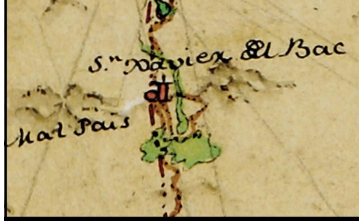 S.ⁿ Xavier del Bac
Mal Pais